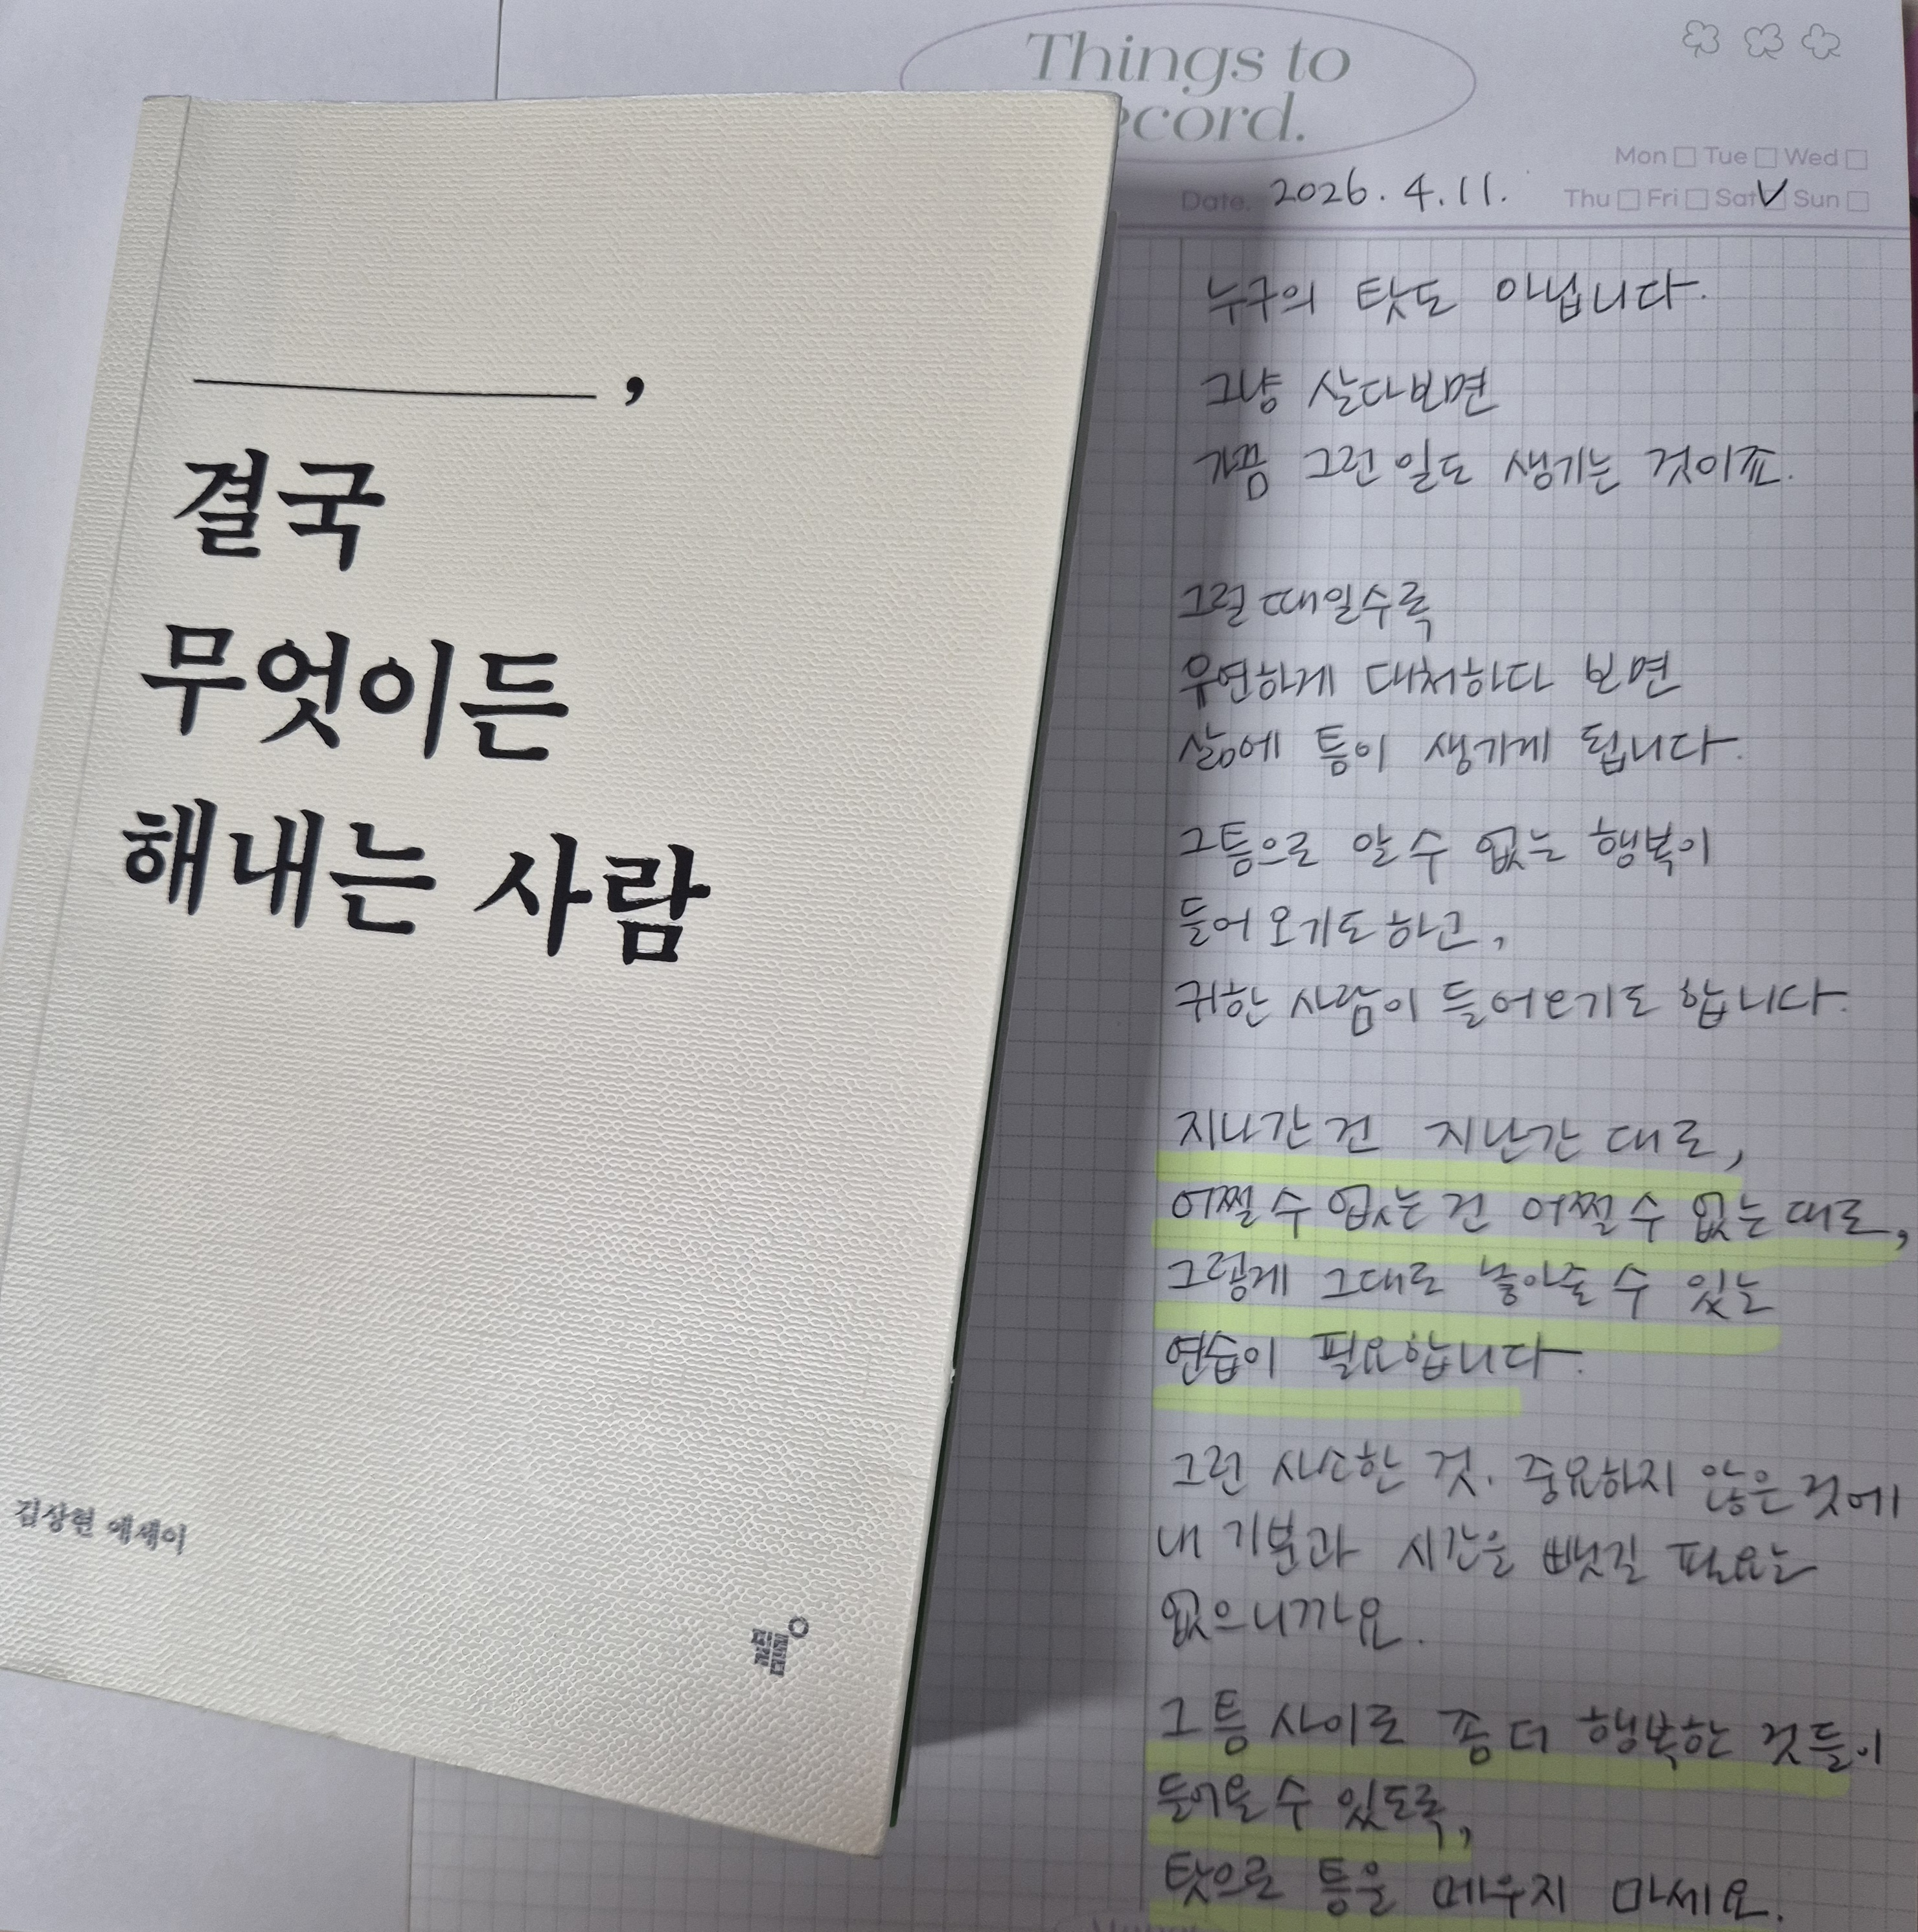 Things to
ecord.
Mon Tue Wed
Date. 2026. 4. 11. Thu Fri Sat Sun
,
결국
무엇이든
해내는 사람
김상현 에세이
필름
누구의 탓도 아닙니다.
그냥 살다보면
가끔 그런 일도 생기는 것이죠.
그럴 때일수록
유연하게 대처하다 보면
삶에 틈이 생기게 됩니다.
그 틈으로 알 수 없는 행복이
들어 오기도 하고,
귀한 사람이 들어오기도 합니다.
지나간 건 지난간 대로,
어쩔 수 없는 건 어쩔 수 없는 대로,
그렇게 그대로 놓아줄 수 있는
연습이 필요합니다.
그런 사소한 것. 중요하지 않은 것에
내 기분과 시간을 뺏길 필요는
없으니까요.
그 틈 사이로 좀 더 행복한 것들이
들어올 수 있도록,
탓으로 틈을 메우지 마세요.